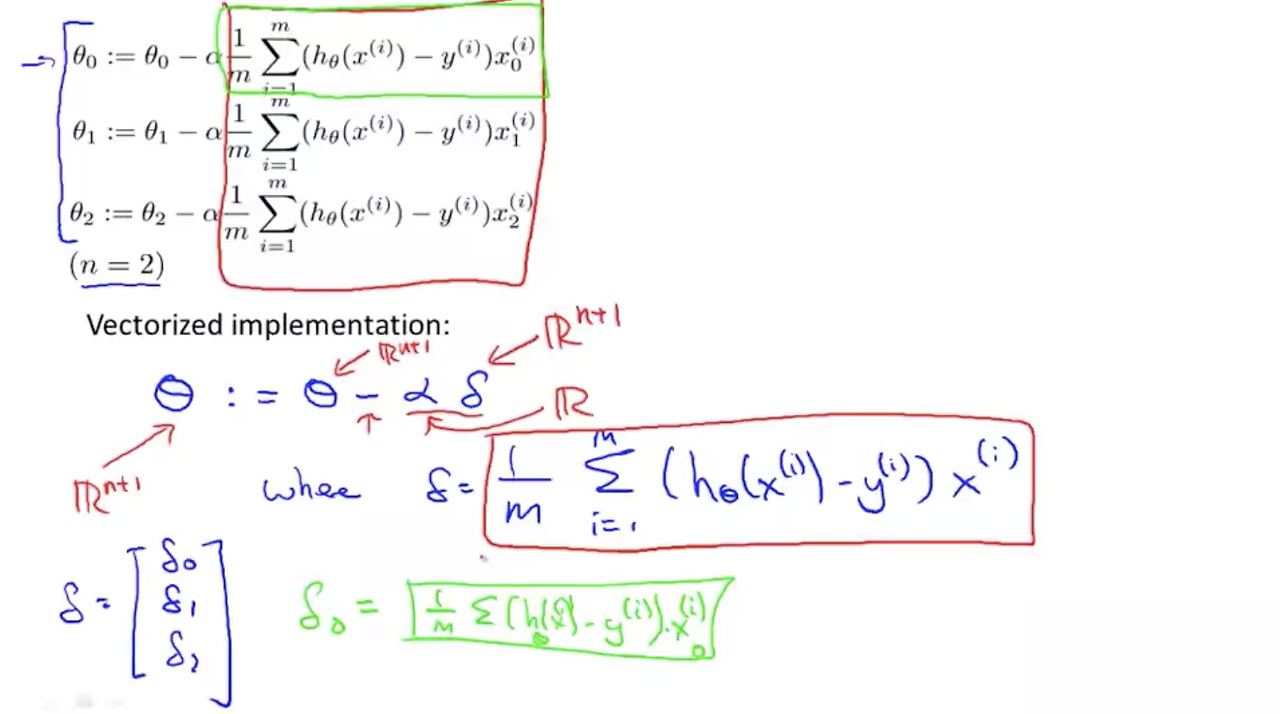 θ₀ := θ₀ − α 1/m ∑_{i=1}^{m} (h_θ(x^{(i)}) − y^{(i)})x_0^{(i)}
θ₁ := θ₁ − α 1/m ∑_{i=1}^{m} (h_θ(x^{(i)}) − y^{(i)})x_1^{(i)}
θ₂ := θ₂ − α 1/m ∑_{i=1}^{m} (h_θ(x^{(i)}) − y^{(i)})x_2^{(i)}
(n = 2)
Vectorized implementation:
ℝ^{n+1} ℝ^{n+1}
θ := θ − α δ
ℝ
ℝ^{n+1}
where δ = 1/m ∑_{i=1}^{m} (h_θ(x^{(i)}) − y^{(i)}) x^{(i)}
δ = [δ₀ δ₁ δ₂]
δ₀ = 1/m ∑ (h_θ(x^{(i)}) − y^{(i)}) · x_0^{(i)}